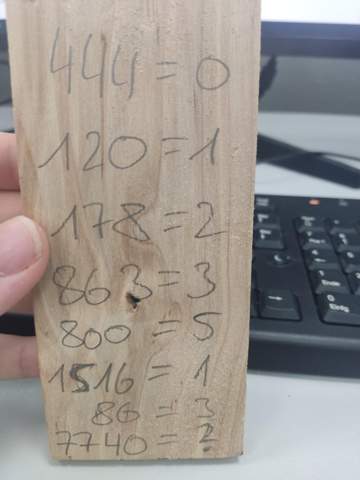 444 = 0
120 = 1
178 = 2
863 = 3
800 = 5
1516 = 1
86 = 3
7740 = ?
1
Ende
0
Einfg